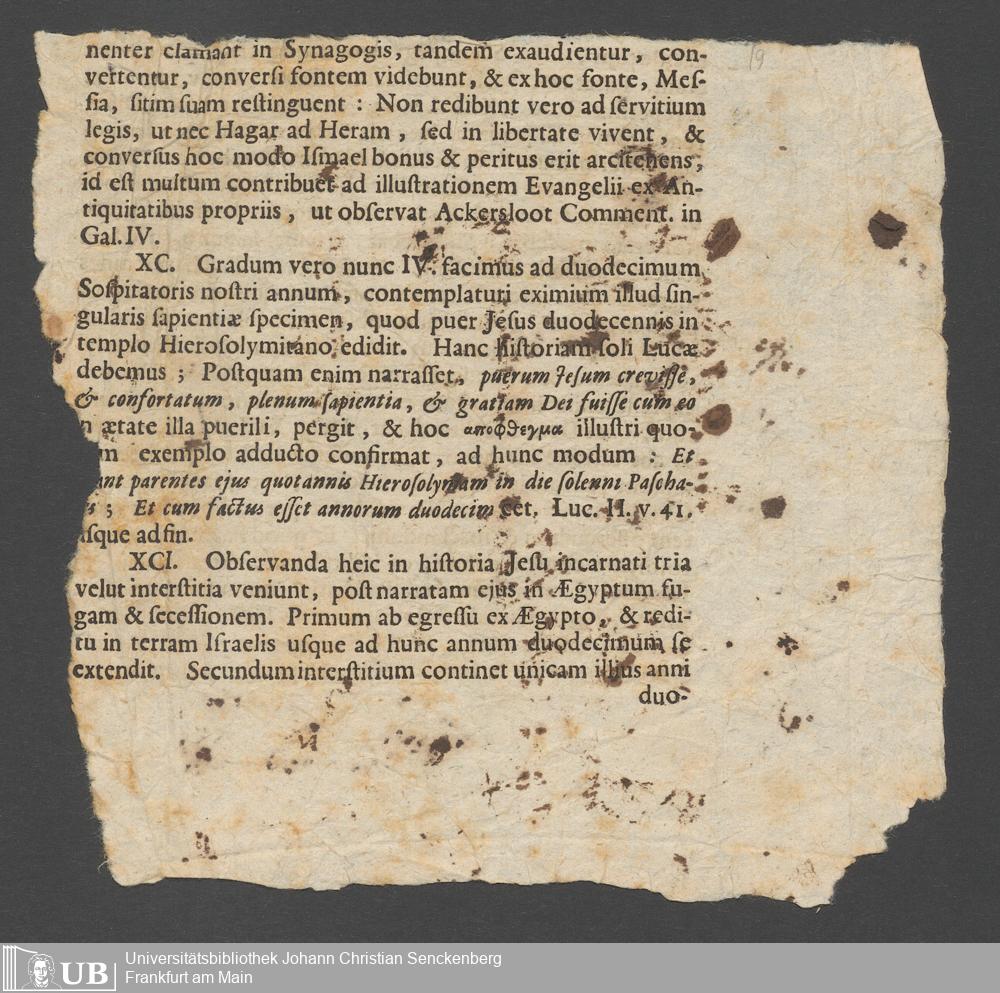 nenter clamant in Synagogis, tandem exaudientur, con-
vertentur, conversi fontem videbunt, & ex hoc fonte, Mes-
sia, sitim suam restinguent : Non redibunt vero ad servitium
legis, ut nec Hagar ad Heram, sed in libertate vivent, &
conversus hoc modo Ismael bonus & peritus erit arcitenens,
id est multum contribuet ad illustrationem Evangelii ex An-
tiquitatibus propriis, ut observat Ackersloot Comment. in
Gal. IV.
XC. Gradum vero nunc IV. facimus ad duodecimum
Sospitatoris nostri annum, contemplaturi eximium illud sin-
gularis sapientiæ specimen, quod puer Jesus duodecennis in
templo Hierosolymitano edidit. Hanc historiam soli Lucæ
debemus ; Postquam enim narrasset, puerum Jesum crevisse,
& confortatum, plenum sapientia, & gratiam Dei fuisse cum eo
n ætate illa puerili, pergit, & hoc αποφθεγμα illustri quo-
m exemplo adducto confirmat, ad hunc modum : Et
ant parentes ejus quotannis Hierosolymam in die solenni Pascha-
s ; Et cum factus esset annorum duodecim cet. Luc. II. v. 41.
usque ad fin.
XCI. Observanda heic in historia Jesu incarnati tria
velut interstitia veniunt, post narratam ejus in Ægyptum fu-
gam & secessionem. Primum ab egressu ex Ægypto, & redi-
tu in terram Israelis usque ad hunc annum duodecimum se
extendit. Secundum interstitium continet unicam illius anni
duo-
19
UB
Universitätsbibliothek Johann Christian Senckenberg
Frankfurt am Main